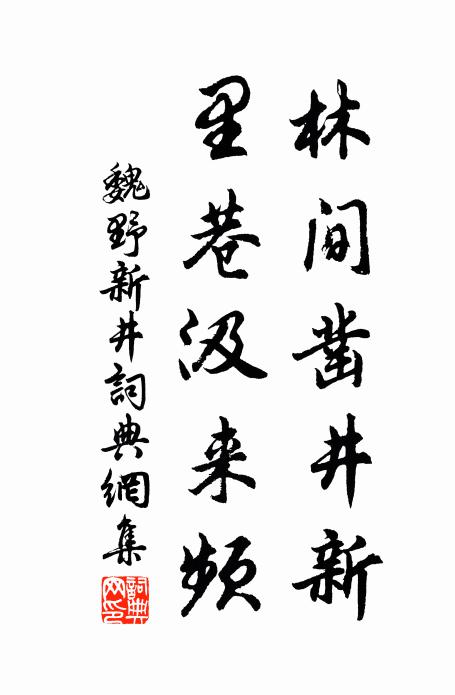 林間鑿井新
里巷汲来頻
魏野新井詞典網集
詞典网印